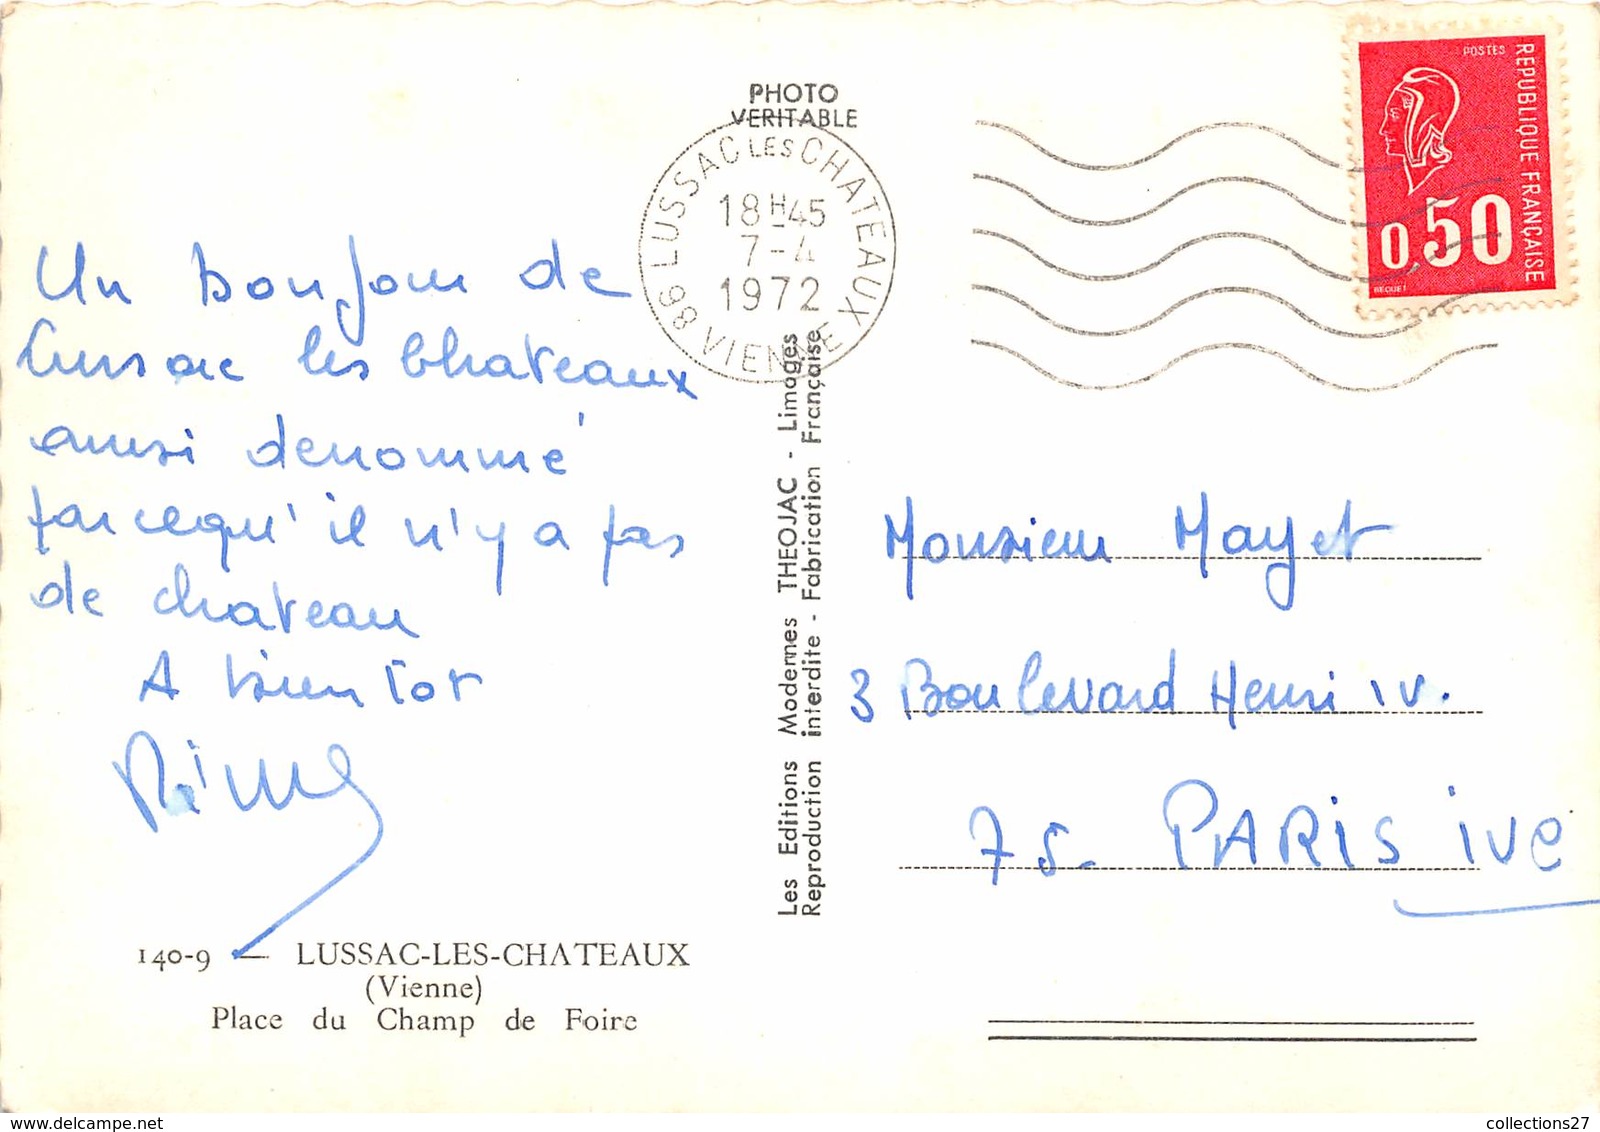 PHOTO
VERITABLE
86 LUSSAC LES CHATEAUX
18H45
7-4
1972
VIENNE
POSTES
REPUBLIQUE FRANÇAISE
0,50
BEQUET
Un Bonjour de
Lussac les Chateaux
aussi denommé
parcequ'il n'y a pas
de chateau
A bientôt
Les Editions Modernes THEOJAC - Limoges
Reproduction interdite - Fabrication Française
Monsieur Mayet
3 Boulevard Henri IV.
75- PARIS IVe
140-9 — LUSSAC-LES-CHATEAUX
(Vienne)
Place du Champ de Foire
collections27